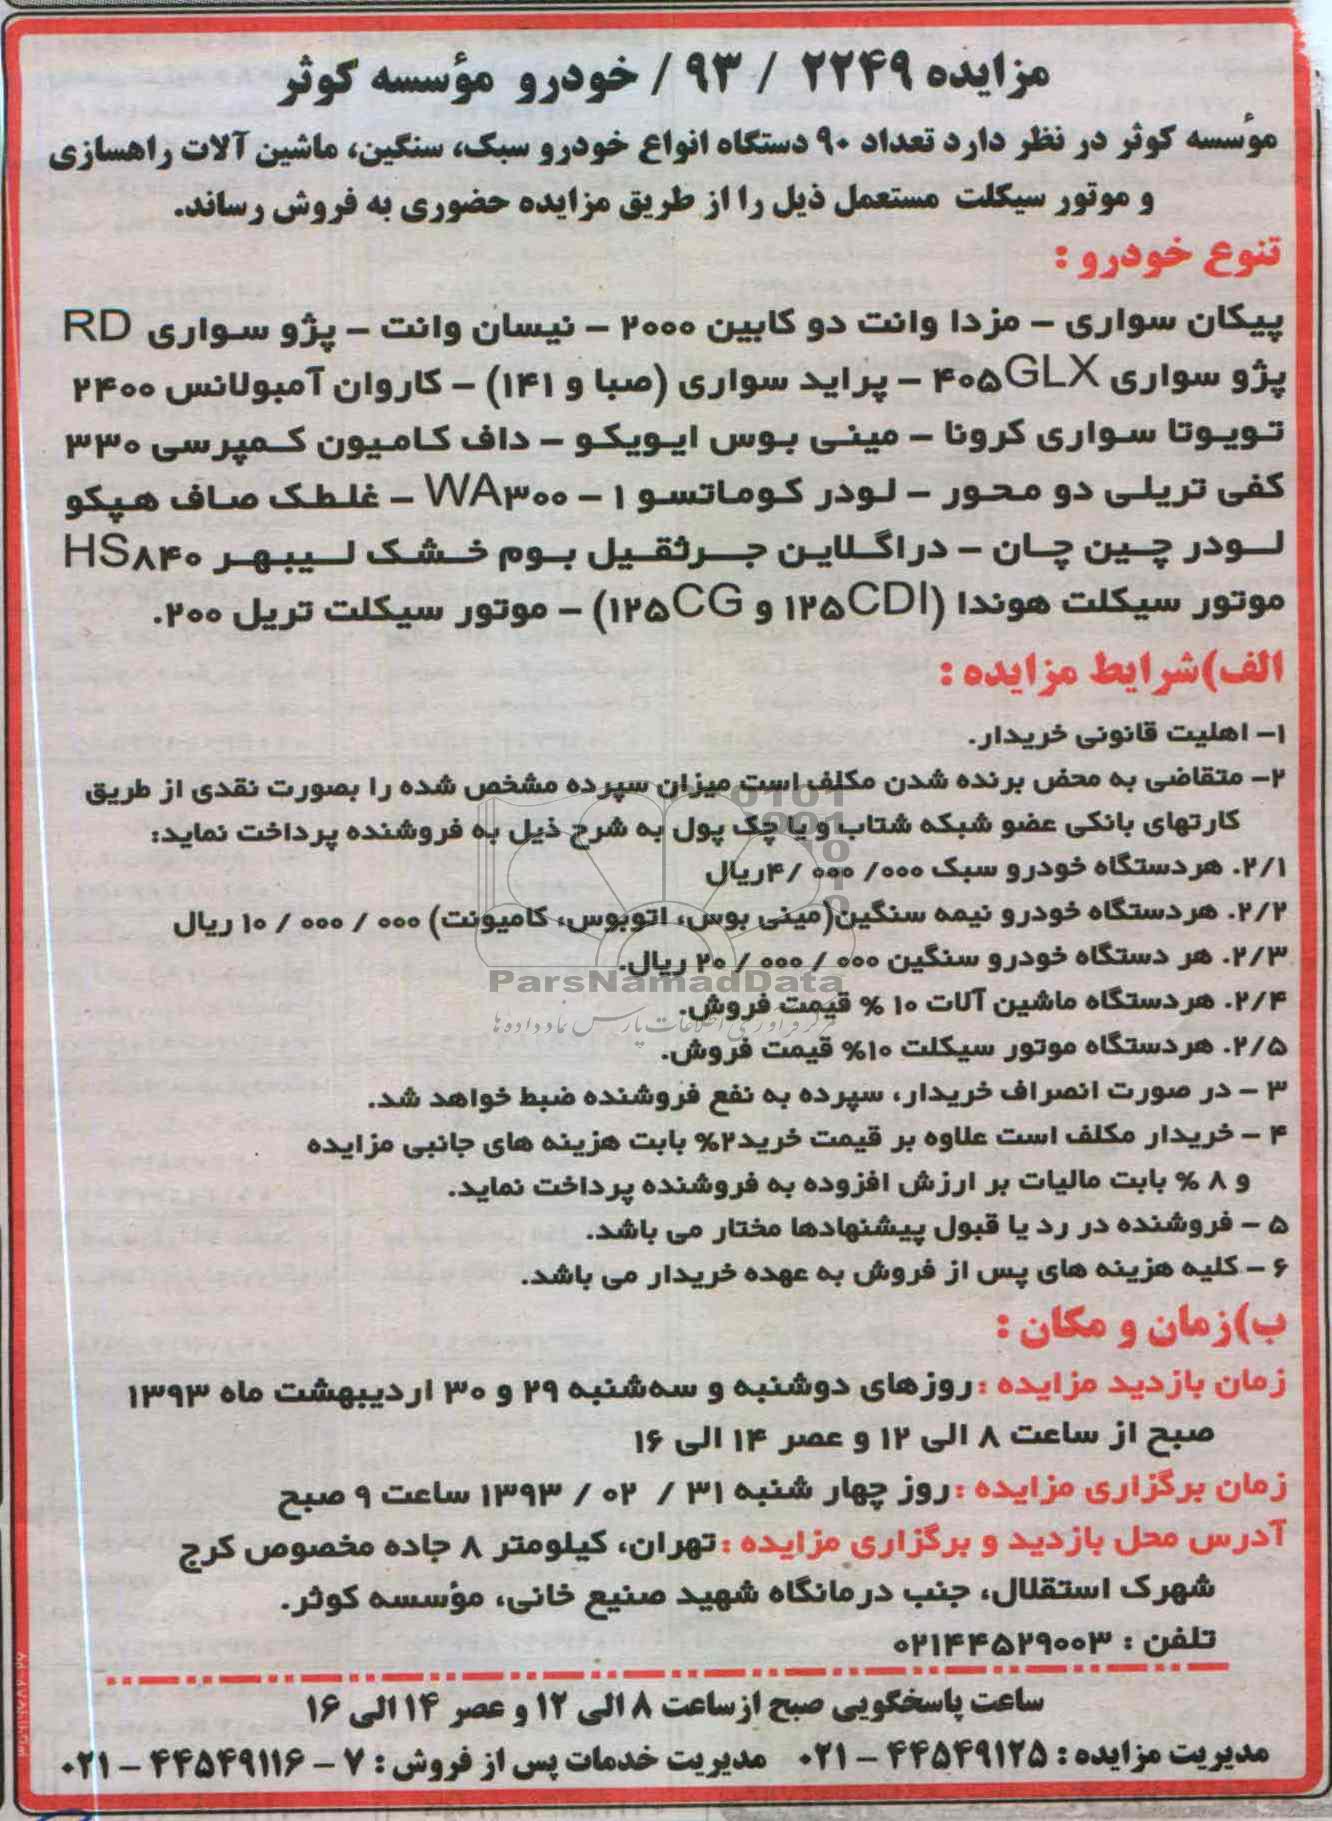 مزایده ۲۲۴۹ / ۹۳/ خودرو مؤسسه کوثر
مؤسسه کوثر در نظر دارد تعداد ۹۰ دستگاه انواع خودرو سبک، سنگین، ماشین آلات راهسازی
و موتور سیکلت مستعمل ذیل را از طریق مزایده حضوری به فروش رساند.
تنوع خودرو :
پیکان سواری – مزدا وانت دو کابین ۲۰۰۰ – نیسان وانت – پژو سواری RD
پژو سواری ۴۰۵GLX – پراید سواری (صبا و ۱۴۱) – کاروان آمبولانس ۲۴۰۰
تویوتا سواری کرونا – مینی بوس ایویکو – داف کامیون کمپرسی ۳۳۰
کفی تریلی دو محور – لودر کوماتسو ۱ – WA۳۰۰ – غلطک صاف هپکو
لودر چین چان – دراگلاین جرثقیل بوم خشک لیبهر HS۸۴۰
موتور سیکلت هوندا (۱۲۵CDI و ۱۲۵CG) – موتور سیکلت تریل ۲۰۰.
الف)شرایط مزایده :
۱– اهلیت قانونی خریدار.
۲– متقاضی به محض برنده شدن مکلف است میزان سپرده مشخص شده را بصورت نقدی از طریق
کارتهای بانکی عضو شبکه شتاب و یا چک پول به شرح ذیل به فروشنده پرداخت نماید:
۲/۱. هردستگاه خودرو سبک ۰۰۰/ ۰۰۰ /۴ریال
۲/۲. هردستگاه خودرو نیمه سنگین(مینی بوس، اتوبوس، کامیونت) ۰۰۰ / ۰۰۰ / ۱۰ ریال
۲/۳. هر دستگاه خودرو سنگین ۰۰۰ / ۰۰۰ / ۲۰ ریال.
۲/۴. هردستگاه ماشین آلات ۱۰ % قیمت فروش.
۲/۵. هردستگاه موتور سیکلت ۱۰% قیمت فروش.
۳ – در صورت انصراف خریدار، سپرده به نفع فروشنده ضبط خواهد شد.
۴ – خریدار مکلف است علاوه بر قیمت خرید۲% بابت هزینه های جانبی مزایده
و ۸ % بابت مالیات بر ارزش افزوده به فروشنده پرداخت نماید.
۵ – فروشنده در رد یا قبول پیشنهادها مختار می باشد.
۶ – کلیه هزینه های پس از فروش به عهده خریدار می باشد.
ب)زمان و مکان :
زمان بازدید مزایده :روزهای دوشنبه و سه‌شنبه ۲۹ و ۳۰ اردیبهشت ماه ۱۳۹۳
صبح از ساعت ۸ الی ۱۲ و عصر ۱۴ الی ۱۶
زمان برگزاری مزایده :روز چهار شنبه ۳۱ / ۰۲ / ۱۳۹۳ ساعت ۹ صبح
آدرس محل بازدید و برگزاری مزایده :تهران، کیلومتر ۸ جاده مخصوص کرج
شهرک استقلال، جنب درمانگاه شهید صنیع خانی، مؤسسه کوثر.
تلفن : ۰۲۱۴۴۵۲۹۰۰۳
ساعت پاسخگویی صبح از ساعت ۸ الی ۱۲ و عصر ۱۴ الی ۱۶
مدیریت مزایده : ۴۴۵۴۹۱۲۵ – ۰۲۱ مدیریت خدمات پس از فروش : ۷ – ۴۴۵۴۹۱۱۶ – ۰۲۱
ParsNamadData
مرکز فرآوری اطلاعات پارس نماد داده ها